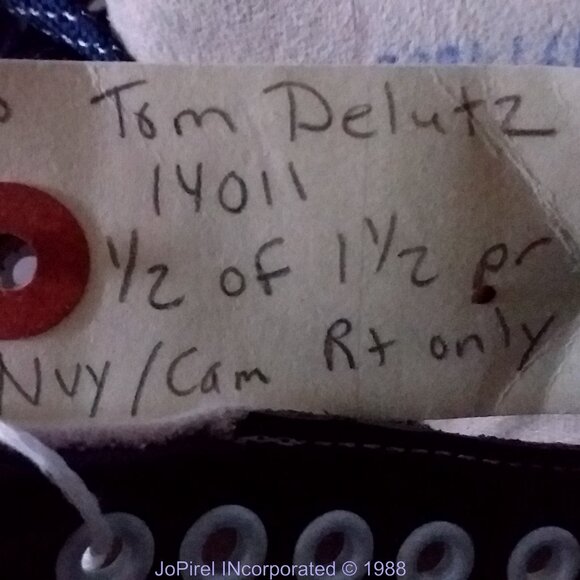 Tom Delutz
14011
1/2 of 1 1/2 pr
Nvy/Cam Rt only
JoPirel INcorporated © 1988